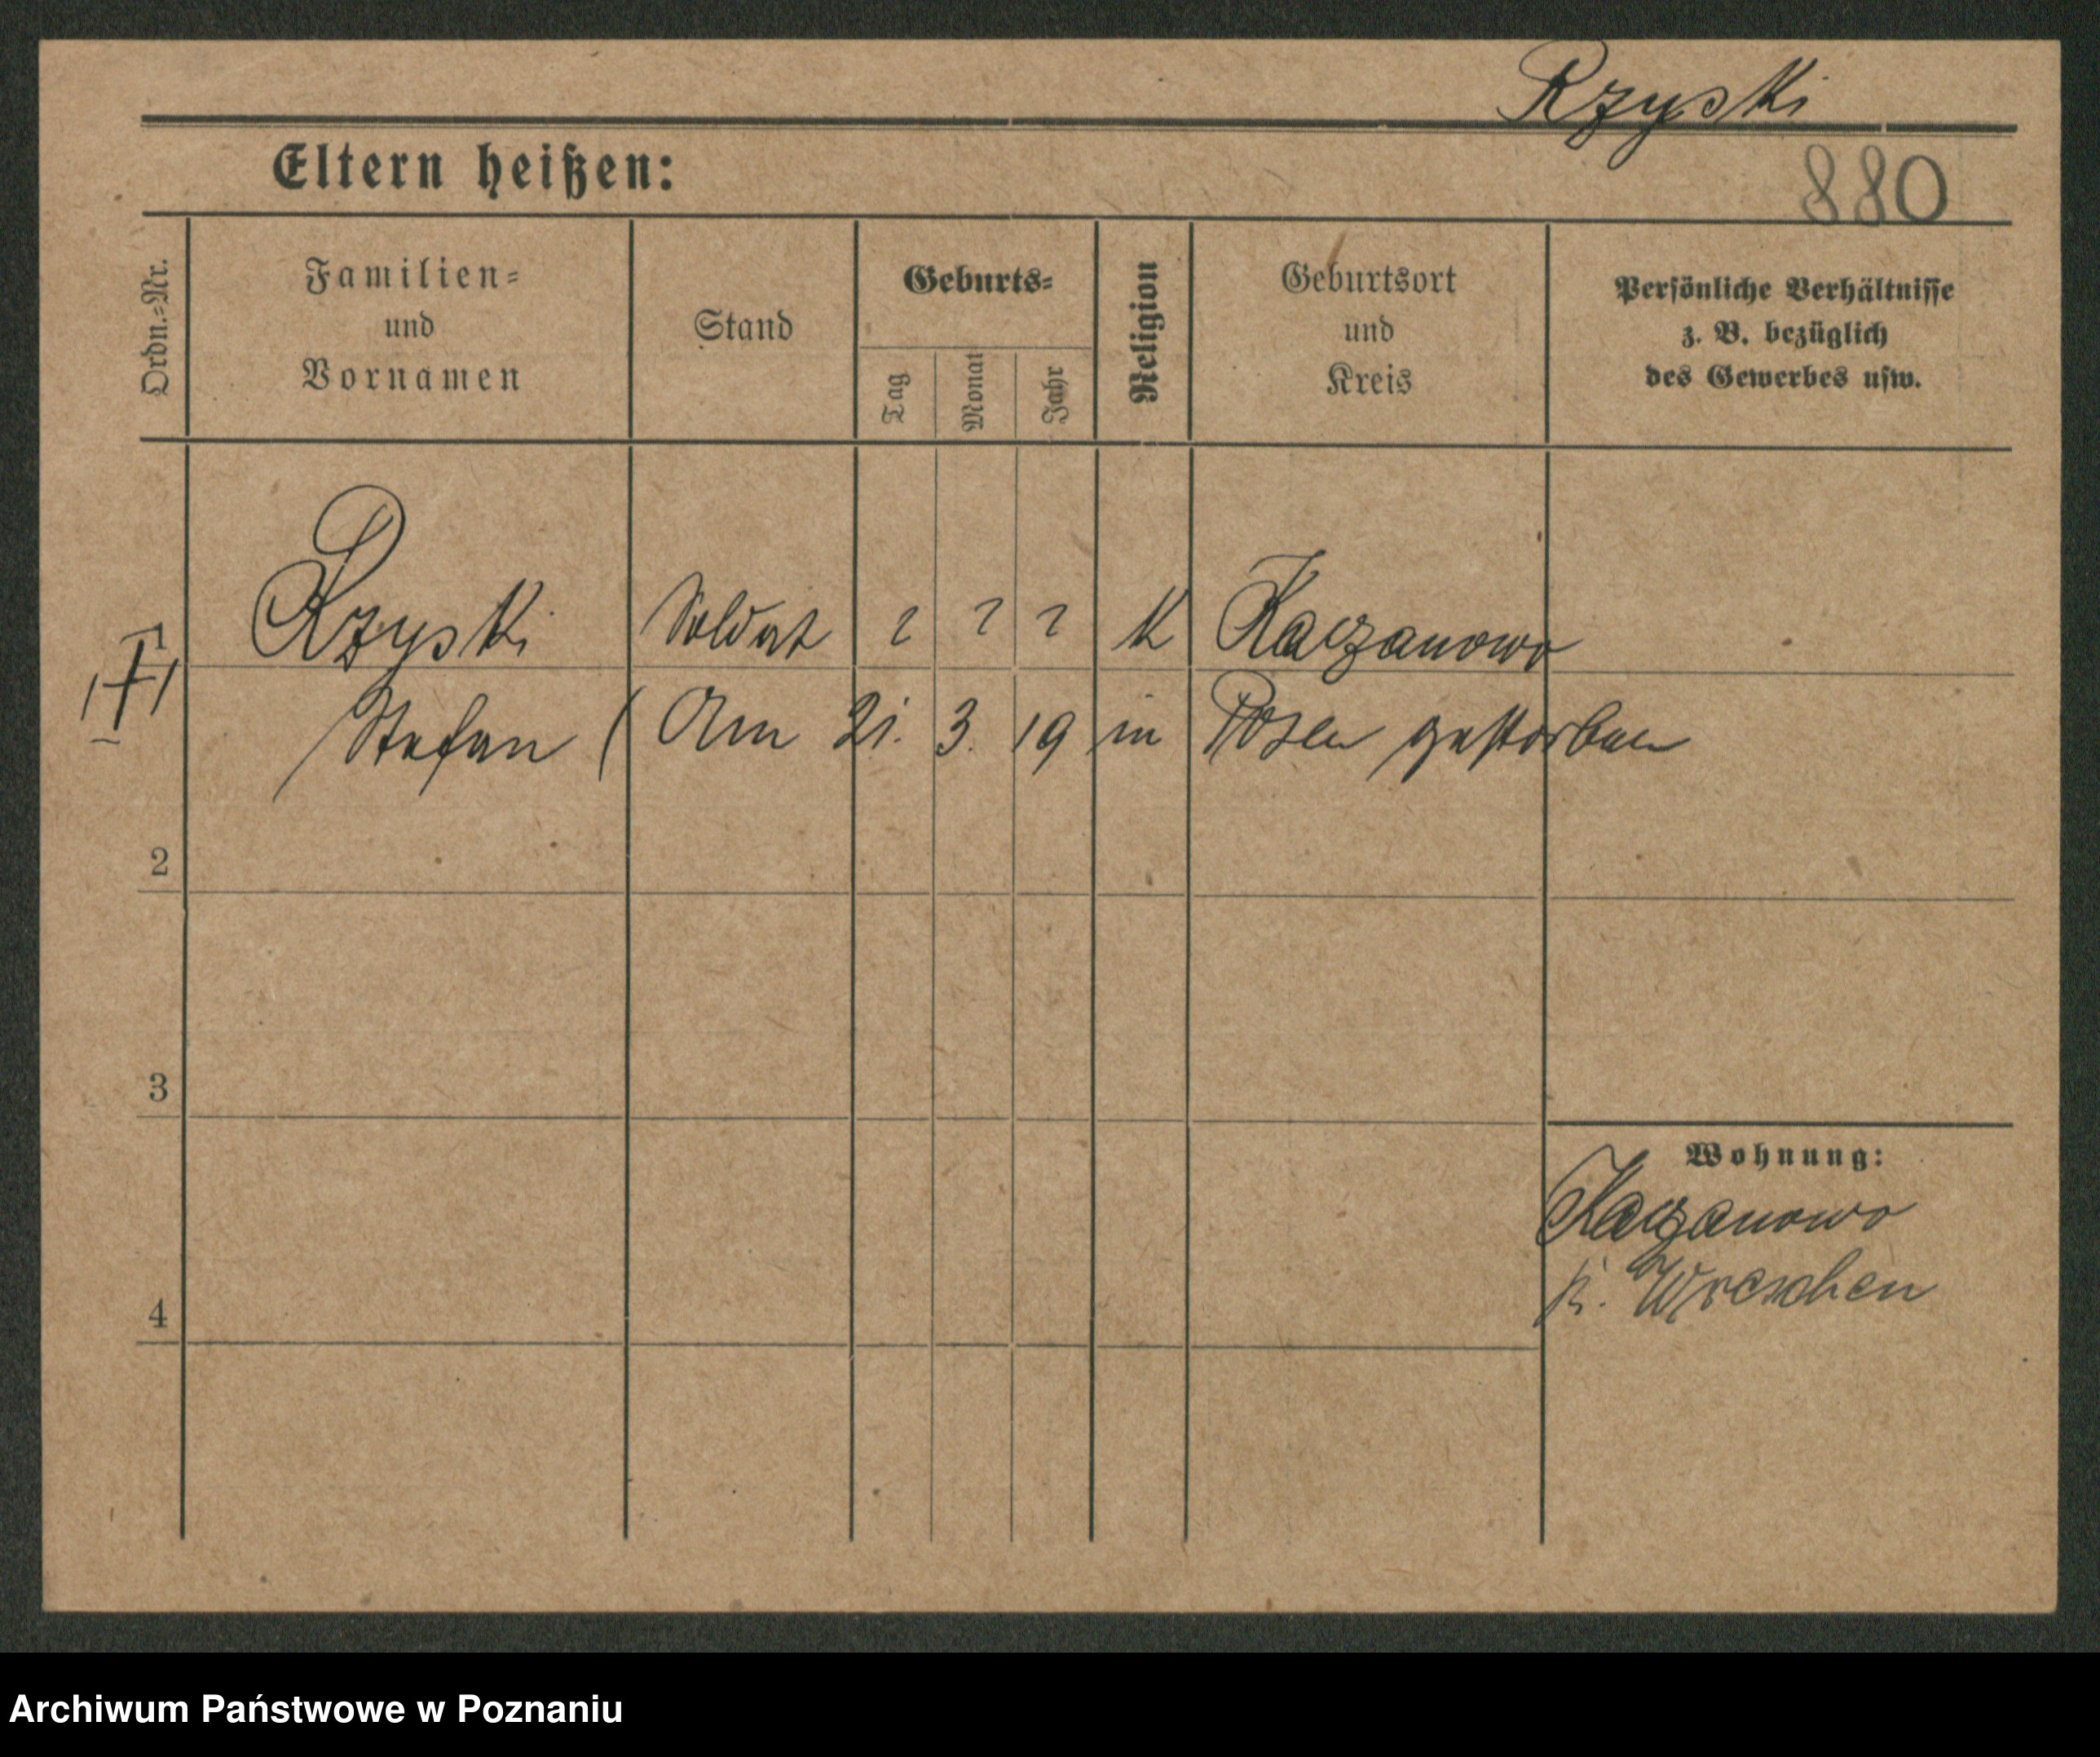 Rzyski
Eltern heißen:
880
Ordn.-Nr.
Familien-
und
Vornamen
Stand
Geburts-
Tag
Monat
Jahr
Religion
Geburtsort
und
Kreis
Persönliche Verhältnisse
z. B. bezüglich
des Gewerbes usw.
Rzyski Soldat ? ? ? K Kaczanowo
Stefan ( Am 21. 3. 19 in Posen gestorben
2
3
Wohnung:
Kaczanowo
K. Wreschen
4
Archiwum Państwowe w Poznaniu